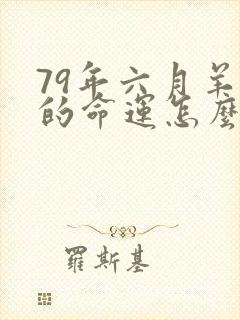 79年六月羊
的命運怎麼
羅斯基